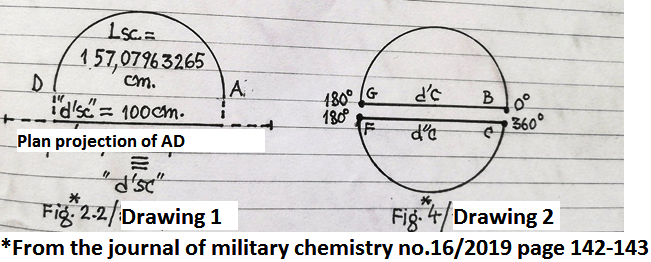 Lsc.=
157,07963265
cm.
D
A.
"d'sc" = 100cm.
Plan projection of AD
≡
"d'sc"
Fig. 2.2/ Drawing 1
180° G d'c B 0°
180° F d"c C 360°
Fig. 4/ Drawing 2
*From the journal of military chemistry no.16/2019 page 142-143